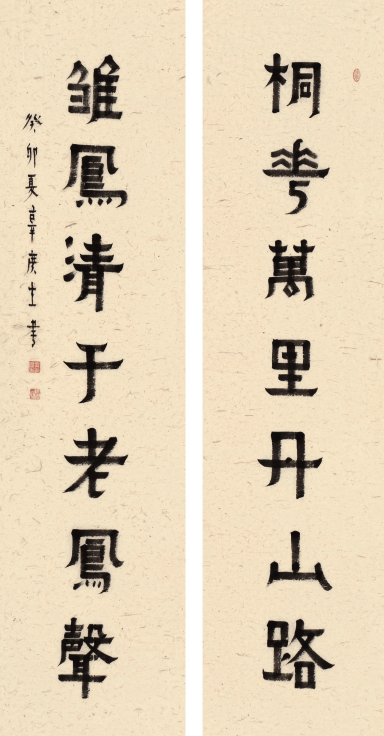 桐華萬里丹山路
雛鳳清于老鳳聲
癸卯夏書